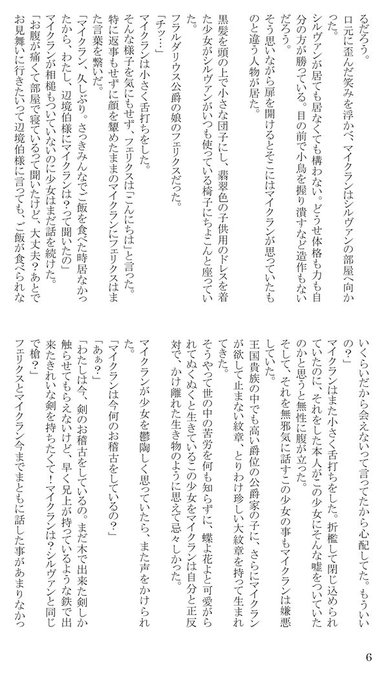 るだろう。
口元に歪んだ笑みを浮かべ、マイクランはシルヴァンの部屋へ向か
った。
シルヴァンが居ても居なくても構わない。どうせ体格も力も自
分の方が勝っている。目の前で小鳥を握り潰すなど造作もない
だろう。
そう思いながら扉を開けるとそこにはマイクランが思っていたも
のと違う人物が居た。
黒髪を頭の上で小さな団子にし、翡翠色の子供用のドレスを着
た少女がシルヴァンがいつも使っている椅子にちょこんと座ってい
る。
フラルダリウス公爵の娘のフェリクスだった。
「チッ…」
マイクランは小さく舌打ちをした。
そんな様子を気にもせず、フェリクスは「こんにちは」と言った。
特に返事もせずに顔を顰めたままのマイクランにフェリクスはま
た言葉を繋いだ。
「マイクラン、久しぶり。さっきみんなでご飯を食べた時居なかっ
たから、わたし、辺境伯様にマイクランは?って聞いたの」
マイクランが相槌もついていないのに少女はまだ話を続けた。
「お腹が痛くて部屋で寝ているって聞いたけど、大丈夫?あとで
お見舞いに行きたいって辺境伯様に言っても、ご飯が食べられな
いくらいだから会えないって言ってたから心配してた。もういい
の?」
マイクランはまた小さく舌打ちをした。折檻して閉じ込められ
ていたのに、それをした本人がこの少女にそんな嘘をついていた
のかと思うと無性に腹が立った。
そして、それを無邪気に話すこの少女の事もマイクランは嫌悪
していた。
王国貴族の中でも高い爵位の公爵家の子に、さらにマイクラン
が欲して止まない紋章、とりわけ珍しい大紋章を持って生まれ
てきた。
そうやって世の中の苦労を何も知らずに、蝶よ花よと可愛がら
れてぬくぬくと生きているこの少女をマイクランは自分と正反
対で、かけ離れた生き物のように思えて忌々しかった。
マイクランが少女を鬱陶しく思っていたら、また声をかけられ
た。
「マイクランは今何のお稽古をしているの?」
「あぁ?」
「わたしは今、剣のお稽古をしているの。まだ木で出来た剣しか
触らせてもらえないけど、早く兄上が持っているような鉄で出
来たきれいな剣を持ちたくて!マイクランは?シルヴァンと同じ
で槍?」
フェリクスとマイクラン今までまともに話した事があまりなかっ
6